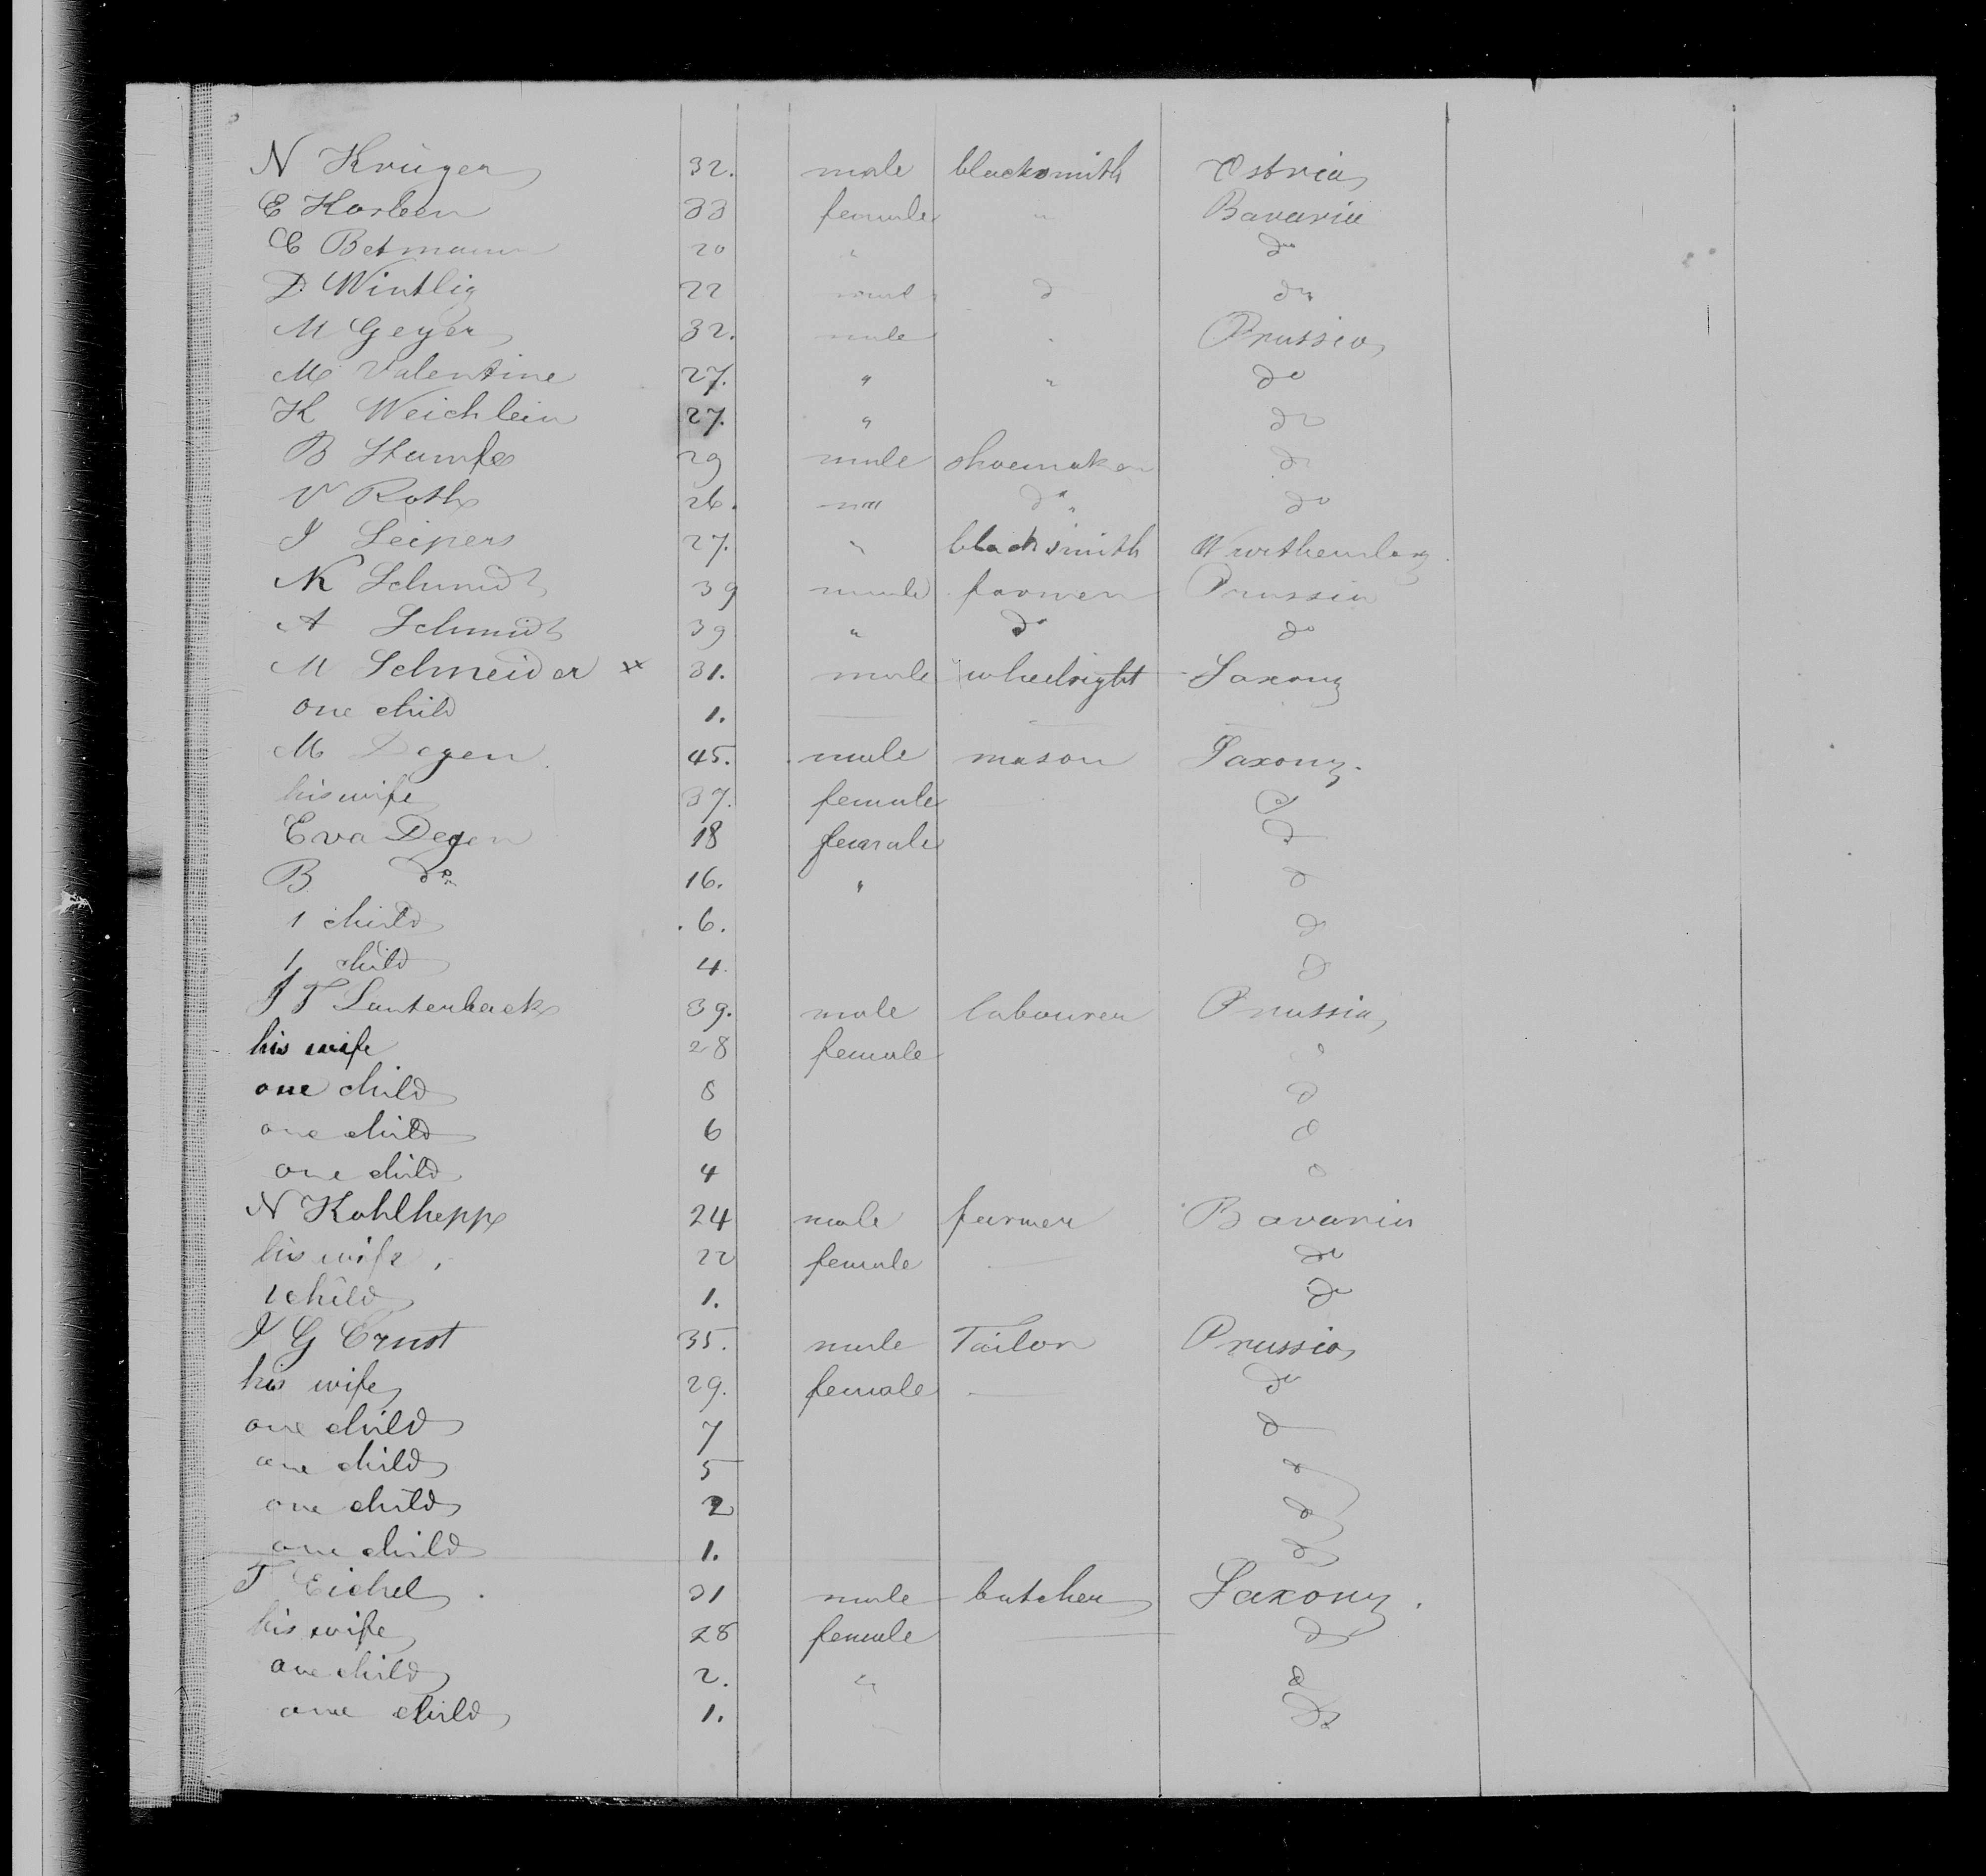 N Krüger 32. male blacksmith Ostria
E Kosleen 33 female " Bavaria
C Betmann 20 " do
D. Wintlig 22 male d do
M Geyer 32. male " Prussia
M Valentine 27. " " do
K Weichlein 27. " do
B Stumfe 29 male shoemaker do
V Roth 26. do do
J Leipers 27. " blacksmith Wurthemberg
K Schmidt 39 male farmer Prussia
A Schmidt 39 " do do
M Schneider x 31. male wheelright Saxony
one child 1.
M Degen 45. male mason Saxony.
his wife 37. female d
Eva Degen 18 female d
B do 16. " d
1 child 6. d
1 child 4. d
J T Lauterback 39. male labourer Prussia
his wife 28 female d
one child 8 d
one child 6 d
one child 4 d
N Kohlhepp 24 male farmer Bavaria
his wife 22 female do
1 child 1. do
J G Ernst 35. male Tailor Prussia
his wife 29. female do
one child 7 d
one child 5 d
one child 2 d
one child 1. d
T Eichel 31 male butcher Saxony.
his wife 28 female d
one child 2. " d
one child 1. do